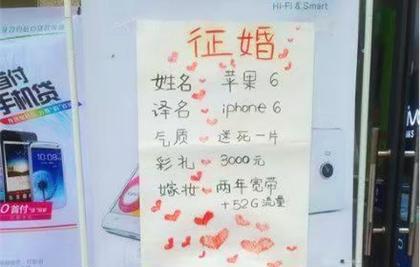 Hi-Fi & Smart
征婚
姓名 苹果 6
译名 iphone 6
气质 迷死一片
彩礼 3000元
嫁妆 两年宽带
+52G 流量
首付
手机贷
0首付